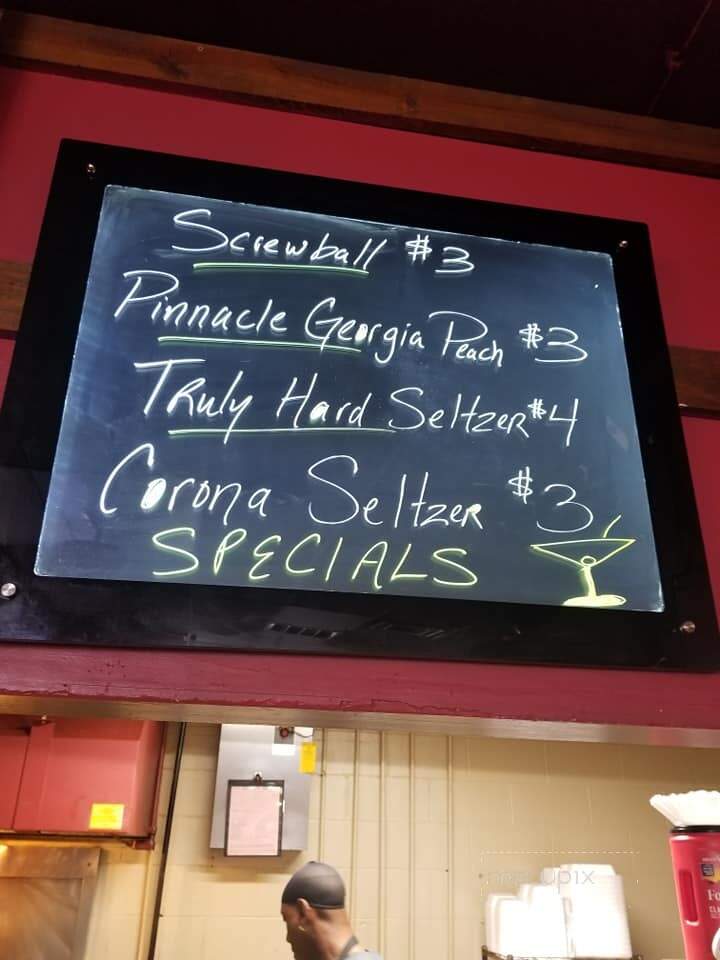 Screwball $3
Pinnacle Georgia Peach $3
Truly Hard Seltzer $4
Corona Seltzer $3
SPECIALS
Fo